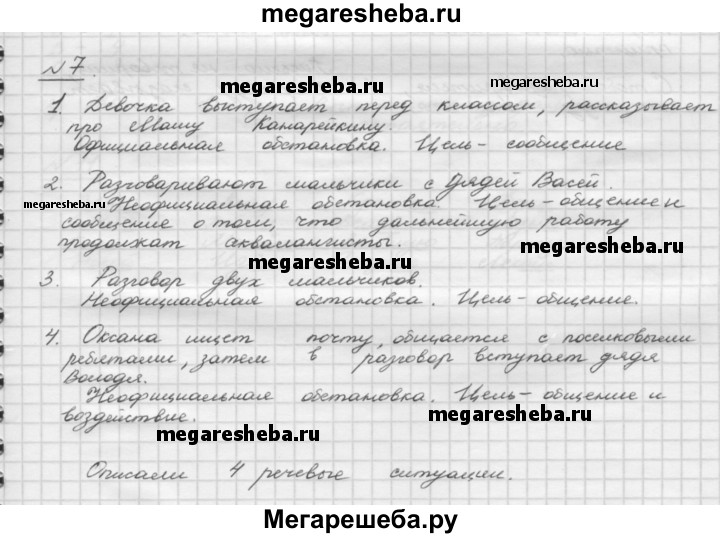 megaresheba.ru
№7.
megaresheba.ru
1. Девочка выступает перед классом, рассказывает
про Машу Канарейкину.
megaresheba.ru
Официальная обстановка. Цель - сообщение
2. Разговаривают мальчики с дядей Васей.
megaresheba.ru
Неофициальная обстановка. Цель - общение и
сообщение о том, что дальнейшую работу
продолжат аквалангисты.
megaresheba.ru
megaresheba.ru
3. Разговор двух мальчиков.
Неофициальная обстановка. Цель - общение.
4. Оксана ищет почту, общается с поселковыми
ребятами, затем в разговор вступает дядя
Володя.
Неофициальная обстановка. Цель - общение и
воздействие.
megaresheba.ru
megaresheba.ru
Описали 4 речевые ситуации.
Мегарешеба.ру